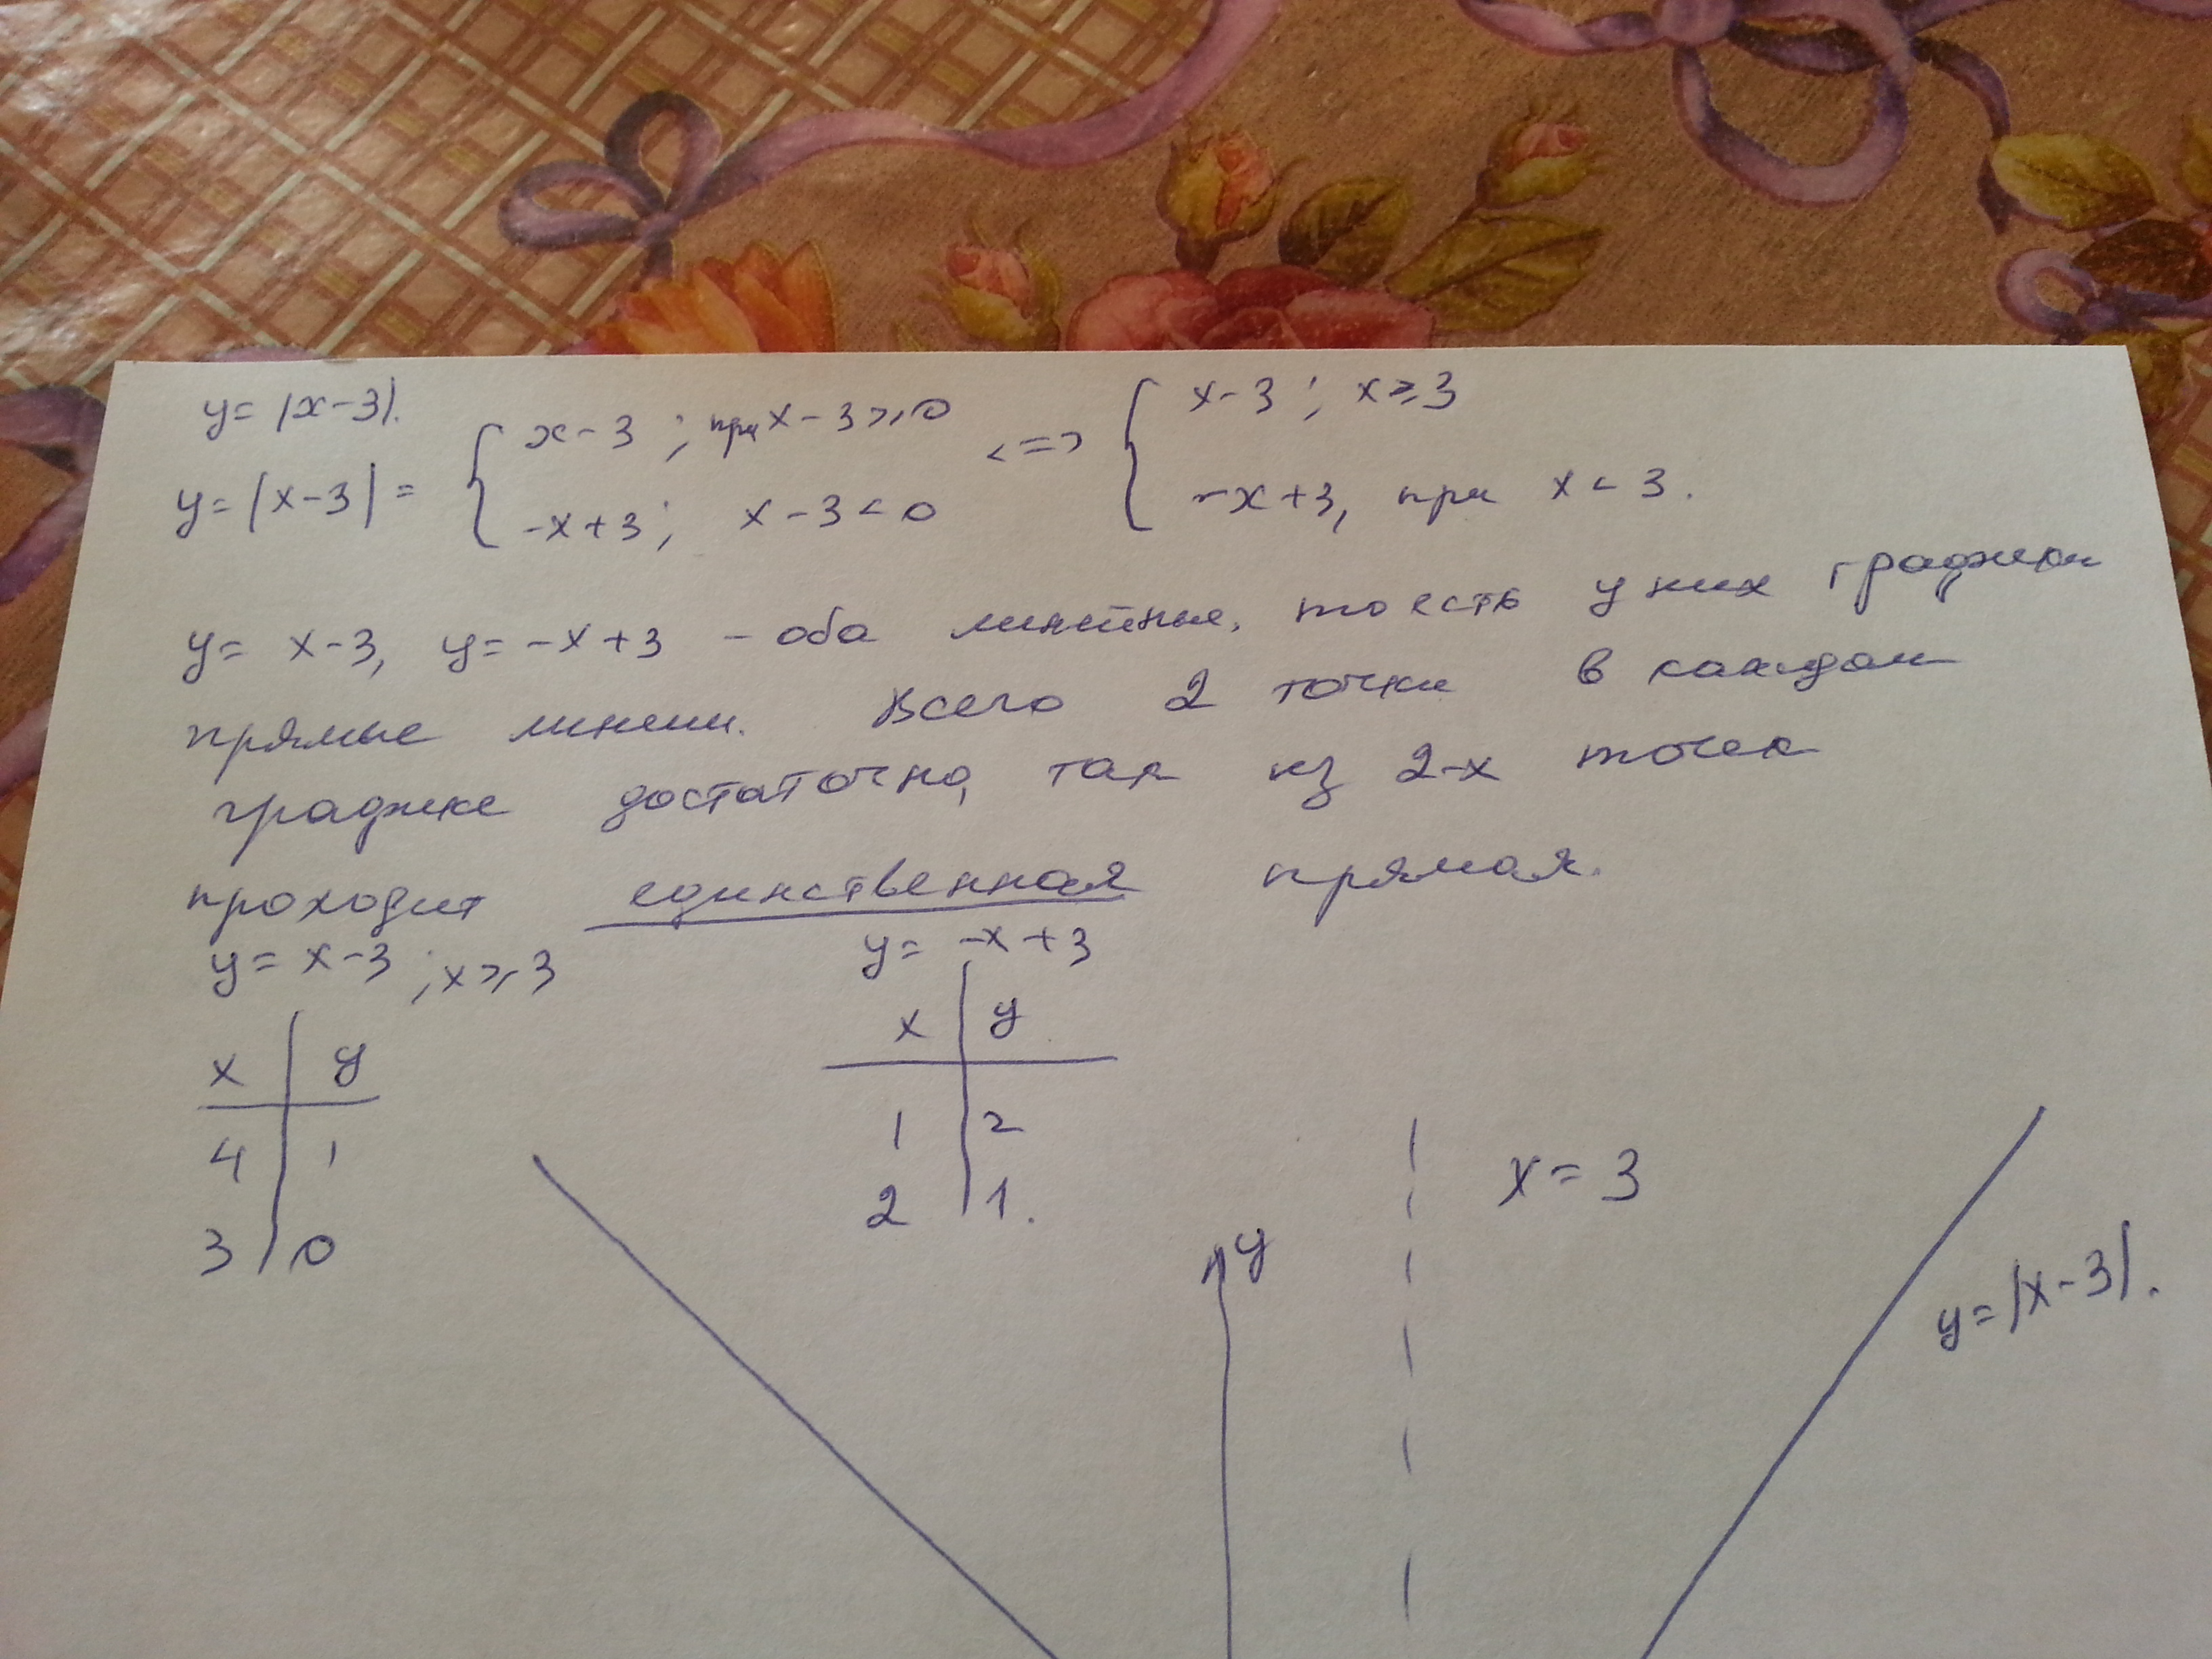 y = |x-3|.
y = |x-3| = { x-3 ; при x-3 ≥ 0 <=> { x-3 ; x ≥ 3
-x+3 ; x-3 < 0 -x+3, при x < 3.
y = x-3, y = -x+3 - оба линейные, то есть у них графики
прямые линии. Всего 2 точки в каждом
графике достаточно, так из 2-х точек
проходит единственная прямая.
y = x-3 ; x ≥ 3 y = -x+3
x | y x | y
4 | 1 1 | 2
3 | 0 2 | 1.
x = 3
y
y = |x-3|.